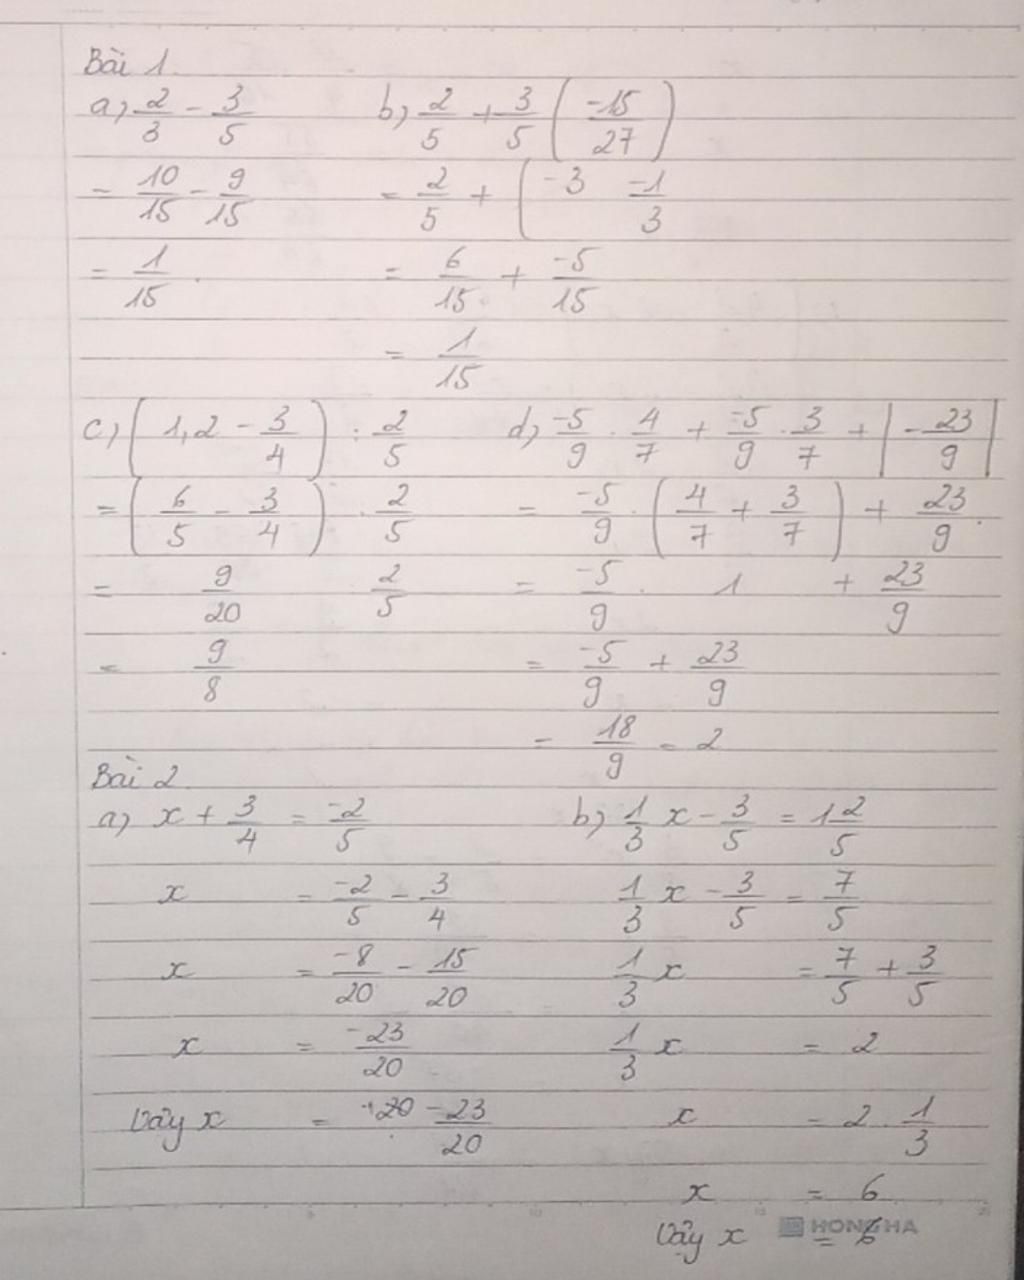 Bài 1.
a) 2/3 - 3/5
= 10/15 - 9/15
= 1/15.
b) 2/5 + 3/5 (-15/27)
= 2/5 + ( -3 -1/3
= 6/15 + -5/15
= 1/15
c) (1,2 - 3/4) : 2/5
= (6/5 - 3/4) : 2/5
= 9/20 : 2/5
= 9/8
d) -5/9 . 4/7 + -5/9 . 3/7 + |-23/9|
= -5/9 . (4/7 + 3/7) + 23/9.
= -5/9 . 1 + 23/9
= -5/9 + 23/9
= 18/9 = 2
Bài 2.
a) x + 3/4 = -2/5
x = -2/5 - 3/4
x = -8/20 - 15/20
x = -23/20
Vậy x = -23/20
b) 1/3 x - 3/5 = 1 2/5
1/3 x - 3/5 = 7/5
1/3 x = 7/5 + 3/5
1/3 x = 2
x = 2 : 1/3
x = 6
Vậy x = 6
HONG HA